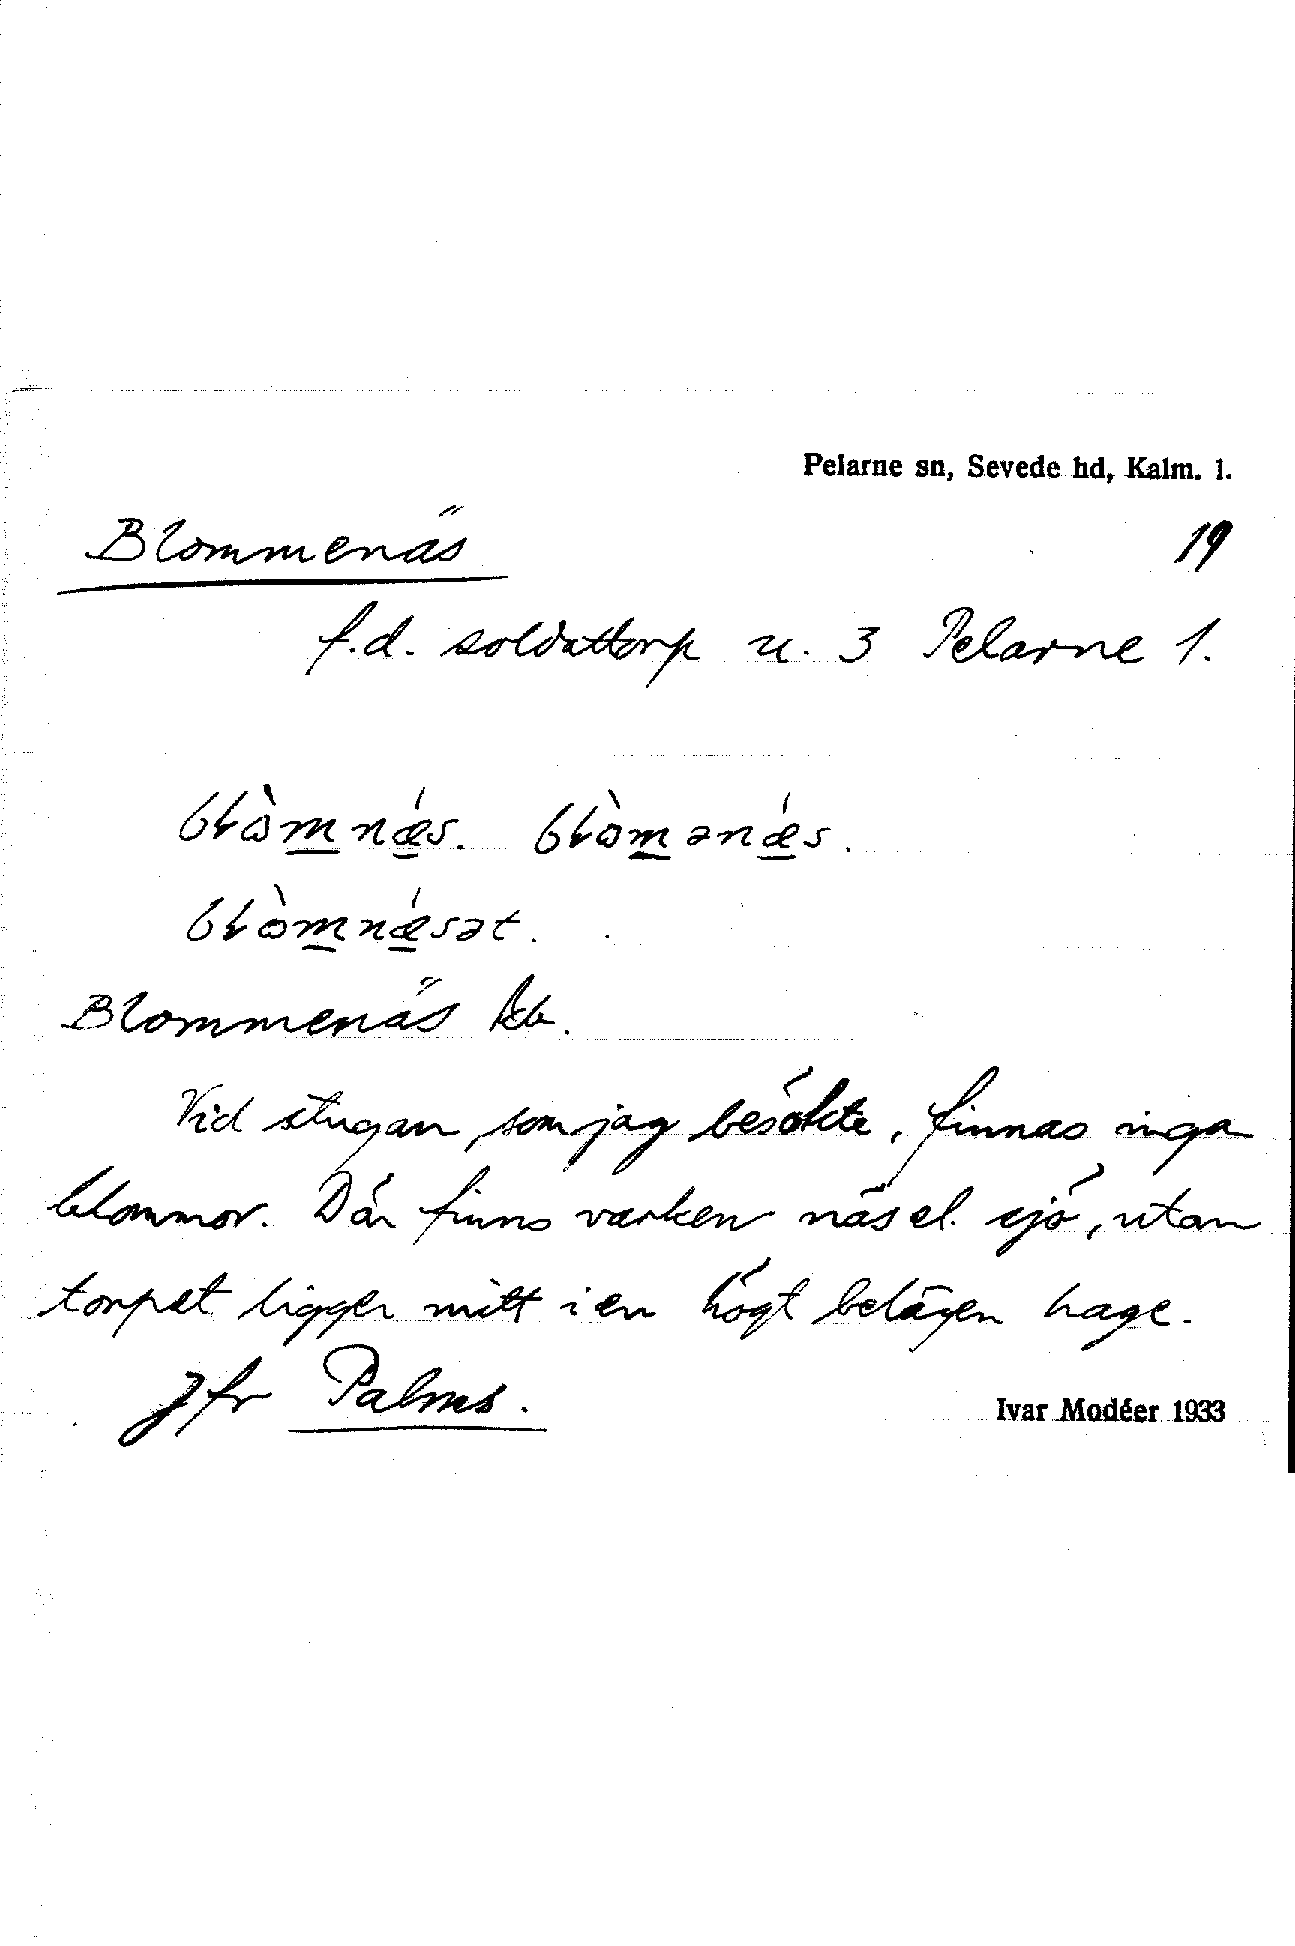 Pelarne sn, Sevede hd, Kalm. l.
Blommenäs
19
f.d. soldattorp u. 3 Pelarne 1.
bɫòmnǽs. bɫòmənǽs.
bɫòmnǽsət.
Blommenäs Eb.
Vid stugan, som jag besökte, finnas inga
blommor. Där finns varken näs el. sjö, utan
torpet ligger mitt i en högt belägen hage.
Jfr Palms.
Ivar Modéer 1933